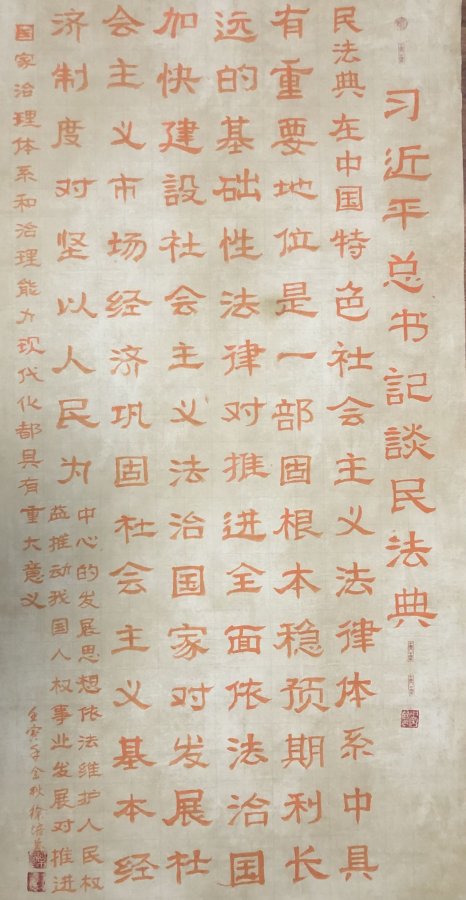 习近平总书記談民法典
民法典在中国特色社会主义法律体系中具
有重要地位是一部固根本稳预期利长
远的基础性法律对推进全面依法治国
加快建設社会主义法治国家对发展社
会主义市场经济巩固社会主义基本经
济制度对坚以人民为
中心的发展思想依法维护人民权
益推动我国人权事业发展对推进
国家治理体系和治理能力现代化都具有重大意义
壬寅年金秋徐